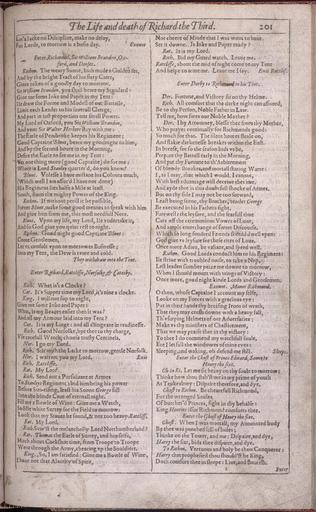 The Life and death of Richard the Third. 201
Let's lacke no Discipline, make no delay,
For Lords, to morrow is a busie day. Exeunt
Enter Richmond, Sir William Brandon, Ox-
ford, and Dorset.
Richm. The weary Sunne, hath made a Golden set,
And by the bright Tract of his fiery Carre,
Giues token of a goodly day to morrow.
Sir William Brandon, you shall beare my Standard:
Giue me some Inke and Paper in my Tent:
Ile draw the Forme and Modell of our Battaile,
Limit each Leader to his seuerall Charge,
And part in iust proportion our small Power.
My Lord of Oxford, you Sir William Brandon,
And your Sir Walter Herbert stay with me:
The Earle of Pembroke keepes his Regiment;
Good Captaine Blunt, beare my goodnight to him,
And by the second houre in the Morning,
Desire the Earle to see me in my Tent:
Yet one thing more (good Captaine) do for me:
Where is Lord Stanley quarter'd, do you know?
Blunt. Vnlesse I haue mistane his Colours much,
(Which well I am assur'd I haue not done)
His Regiment lies halfe a Mile at least
South, from the mighty Power of the King.
Richm. If without perill it be possible,
Sweet Blunt, make some good meanes to speak with him
And giue him from me, this most needfull Note.
Blunt. Vpon my life, my Lord, Ile vndertake it,
And so God giue you quiet rest to night.
Richm. Good night good Captaine Blunt:
Come Gentlemen,
Let vs consult vpon to morrowes Businesse;
Into my Tent, the Dew is rawe and cold.
They withdraw into the Tent.
Enter Richard, Ratcliffe, Norfolke, & Catesby.
Rich. What is't a Clocke?
Cat. It's Supper time my Lord, it's nine a clocke.
King. I will not sup to night,
Giue me some Inke and Paper:
What, is my Beauer easier then it was?
And all my Armour laid into my Tent?
Cat. It is my Liege: and all things are in readinesse.
Rich. Good Norfolke, hye thee to thy charge,
Vse carefull Watch, choose trusty Centinels,
Nor. I go my Lord.
Rich. Stir with the Larke to morrow, gentle Norfolk.
Nor. I warrant you my Lord. Exit
Rich. Ratcliffe.
Rat. My Lord.
Rich. Send out a Pursuiuant at Armes
To Stanleys Regiment: bid him bring his power
Before Sun-rising, least his Sonne George fall
Into the blinde Caue of eternall night.
Fill me a Bowle of Wine: Giue me a Watch,
Saddle white Surrey for the Field to morrow:
Look that my Staues be sound, & not too heauy. Ratcliff.
Rat. My Lord.
Rich. Saw'st the melancholly Lord Northumberland?
Rat. Thomas the Earle of Surrey, and himselfe,
Much about Cockshut time, from Troope to Troope
Went through the Army, chearing vp the Souldiers.
King. So, I am satisfied: Giue me a Bowle of Wine,
I haue not that Alacrity of Spirit,
Nor cheere of Minde that I was wont to haue.
Set it downe. Is Inke and Paper ready?
Rat. It is my Lord.
Rich. Bid my Guard watch. Leaue me.
Ratcliffe, about the mid of night come to my Tent
And helpe to arme me. Leaue me I say. Exit Ratclif.
Enter Derby to Richmond in his Tent.
Der. Fortune, and Victory sit on thy Helme.
Rich. All comfort that the darke night can affoord,
Be to thy Person, Noble Father in Law.
Tell me, how fares our Noble Mother?
Der. I by Attourney, blesse thee from thy Mother,
Who prayes continually for Richmonds good:
So much for that. The silent houres steale on,
And flakie darkenesse breakes within the East.
In breefe, for so the season bids vs be,
Prepare thy Battell early in the Morning,
And put thy Fortune to th'Arbitrement
Of bloody stroakes, and mortall staring Warre:
I, as I may, that which I would, I cannot,
With best aduantage will deceiue the time,
And ayde thee in this doubtfull shocke of Armes.
But on thy side I may not be too forward,
Least being seene, thy Brother, tender George
Be executed in his Fathers sight.
Farewell: the leysure, and the fearefull time
Cuts off the ceremonious Vowes of Loue,
And ample enterchange of sweet Discourse,
Which so long sundred Friends should dwell vpon:
God giue vs leysure for these rites of Loue.
Once more Adieu, be valiant, and speed well.
Richm. Good Lords conduct him to his Regiment:
Ile striue with troubled noise, to take a Nap,
Lest leaden slumber peize me downe to morrow,
When I should mount with wings of Victory:
Once more, good night kinde Lords and Gentlemen.
Exeunt. Manet Richmond.
O thou, whose Captaine I account my selfe,
Looke on my Forces with a gracious eye:
Put in their hands thy bruising Irons of wrath,
That they may crush downe with a heauy fall,
Th'vsurping Helmets of our Aduersaries:
Make vs thy ministers of Chasticement,
That we may praise thee in thy victory:
To thee I do commend my watchfull soule,
Ere I let fall the windowes of mine eyes:
Sleeping, and waking, oh defend me still. Sleeps.
Enter the Ghost of Prince Edward, Sonne to
Henry the sixt.
Gh. to Ri. Let me sit heauy on thy soule to morrow:
Thinke how thou stab'st me in my prime of youth
At Teukesbury: Dispaire therefore, and dye.
Ghost to Richm. Be chearefull Richmond,
For the wronged Soules
Of butcher'd Princes, fight in thy behalfe:
King Henries issue Richmond comforts thee.
Enter the Ghost of Henry the sixt.
Ghost. When I was mortall, my Annointed body
By thee was punched full of holes;
Thinke on the Tower, and me: Dispaire, and dye,
Harry the sixt, bids thee dispaire, and dye.
To Richm. Vertuous and holy be thou Conqueror:
Harry that prophesied thou should'st be King,
Doth comfort thee in sleepe: Liue, and flourish.
Enter